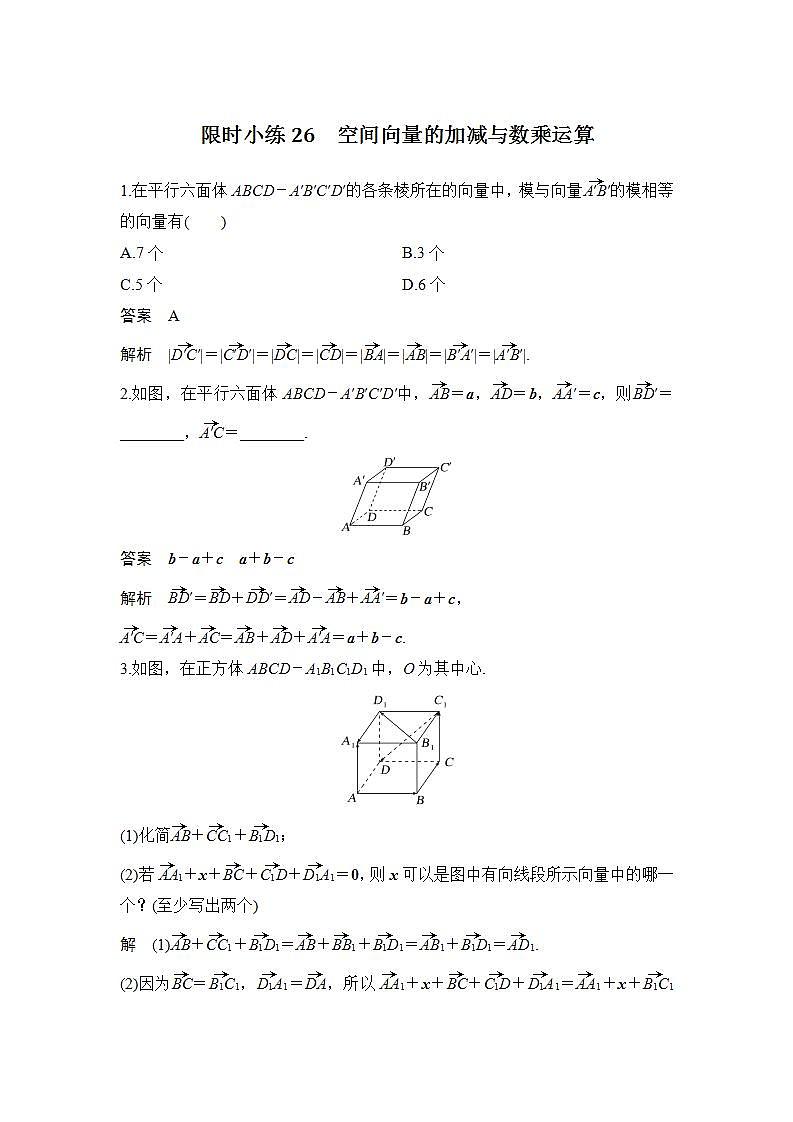 限时小练26　空间向量的加减与数乘运算
1.在平行六面体ABCD－A′B′C′D′的各条棱所在的向量中，模与向量$\overrightarrow{A'B'}$的模相等
的向量有(　　)
A.7个　B.3个
C.5个　D.6个
答案　A
解析　|$\overrightarrow{D'C'}$|＝|$\overrightarrow{C'D'}$|＝|$\overrightarrow{DC}$|＝|$\overrightarrow{CD}$|＝|$\overrightarrow{BA}$|＝|$\overrightarrow{AB}$|＝|$\overrightarrow{B'A'}$|＝|$\overrightarrow{A'B'}$|.
2.如图，在平行六面体ABCD－A′B′C′D′中，$\overrightarrow{AB}$＝a，$\overrightarrow{AD}$＝b，$\overrightarrow{AA'}$＝c，则$\overrightarrow{BD'}$＝
________，$\overrightarrow{A'C}$＝________.
D′ C′
A′ B′
D C
A B
答案　b－a＋c　a＋b－c
解析　$\overrightarrow{BD'}$＝$\overrightarrow{BD}$＋$\overrightarrow{DD'}$＝$\overrightarrow{AD}$－$\overrightarrow{AB}$＋$\overrightarrow{AA'}$＝b－a＋c，
$\overrightarrow{A'C}$＝$\overrightarrow{A'A}$＋$\overrightarrow{AC}$＝$\overrightarrow{AB}$＋$\overrightarrow{AD}$＋$\overrightarrow{A'A}$＝a＋b－c.
3.如图，在正方体ABCD－A₁B₁C₁D₁中，O为其中心.
D₁ C₁
A₁ B₁
D C
A B
(1)化简$\overrightarrow{AB}$＋$\overrightarrow{CC_1}$＋$\overrightarrow{B_1D_1}$；
(2)若$\overrightarrow{AA_1}$＋x＋$\overrightarrow{BC}$＋$\overrightarrow{C_1D}$＋$\overrightarrow{D_1A_1}$＝0，则x可以是图中有向线段所示向量中的哪一
个？(至少写出两个)
解　(1)$\overrightarrow{AB}$＋$\overrightarrow{CC_1}$＋$\overrightarrow{B_1D_1}$＝$\overrightarrow{AB}$＋$\overrightarrow{BB_1}$＋$\overrightarrow{B_1D_1}$＝$\overrightarrow{AB_1}$＋$\overrightarrow{B_1D_1}$＝$\overrightarrow{AD_1}$.
(2)因为$\overrightarrow{BC}$＝$\overrightarrow{B_1C_1}$，$\overrightarrow{D_1A_1}$＝$\overrightarrow{DA}$，所以$\overrightarrow{AA_1}$＋x＋$\overrightarrow{BC}$＋$\overrightarrow{C_1D}$＋$\overrightarrow{D_1A_1}$＝$\overrightarrow{AA_1}$＋x＋$\overrightarrow{B_1C_1}$